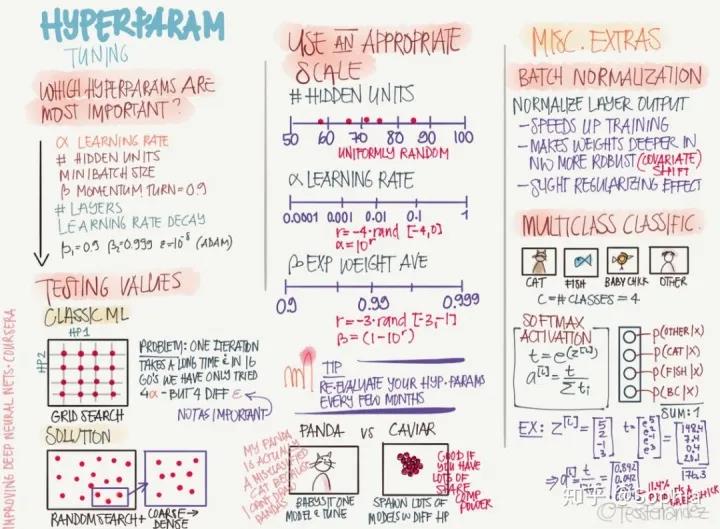 HYPERPARAM
TUNING
WHICH HYPERPARAMS ARE
MOST IMPORTANT?
α LEARNING RATE
# HIDDEN UNITS
MINIBATCH SIZE
β MOMENTUM TURN = 0.9
# LAYERS
LEARNING RATE DECAY
β₁=0.9 β₂=0.999 ε=10⁻⁸ (ADAM)
TESTING VALUES
CLASSIC ML
HP1
HP2
GRID SEARCH
PROBLEM: ONE ITERATION
TAKES A LONG TIME & IN 16
GO'S WE HAVE ONLY TRIED
4α - BUT 4 DIFF ε
NOT AS IMPORTANT
SOLUTION
RANDOM SEARCH +
COARSE → DENSE
IMPROVING DEEP NEURAL NETS: COURSERA
USE AN APPROPRIATE
SCALE
# HIDDEN UNITS
50 60 70 80 90 100
UNIFORMLY RANDOM
α LEARNING RATE
0.0001 0.001 0.01 0.1 1
r=-4·rand [-4,0]
α=10ʳ
β EXP WEIGHT AVE
0.9 0.99 0.999
r=-3·rand [-3,-1]
β=(1-10ʳ)
TIP
RE-EVALUATE YOUR HYP. PARAMS
EVERY FEW MONTHS
PANDA VS CAVIAR
MY PANDA
IS ACTUALLY
A MISCLASSIFIED
CAT BECAUSE
I CAN'T DRAW
PANDAS
BABYSIT ONE
MODEL & TUNE
SPAWN LOTS OF
MODELS W DIFF HP
GOOD IF
YOU HAVE
LOTS OF
SPARE
COMP
POWER
MISC. EXTRAS
BATCH NORMALIZATION
NORMALIZE LAYER OUTPUT
- SPEEDS UP TRAINING
- MAKES WEIGHTS DEEPER IN
NW MORE ROBUST (COVARIATE
SHIFT)
- SLIGHT REGULARIZING EFFECT
MULTICLASS CLASSIFIC.
CAT FISH BABY CHICK OTHER
C = # CLASSES = 4
SOFTMAX
ACTIVATION
t = e^(z^[L])
a^[L] = t / Σtᵢ
P(OTHER|X)
P(CAT|X)
P(FISH|X)
P(BC|X)
SUM: 1
EX: Z^[L] = [5 2 -1 3] t = [e⁵ e² e⁻¹ e³] = [148.4 7.4 0.4 20.1]
176.3
→ a^[L] = t = [0.842 0.042
11.4%
知乎
@TessFerrandez